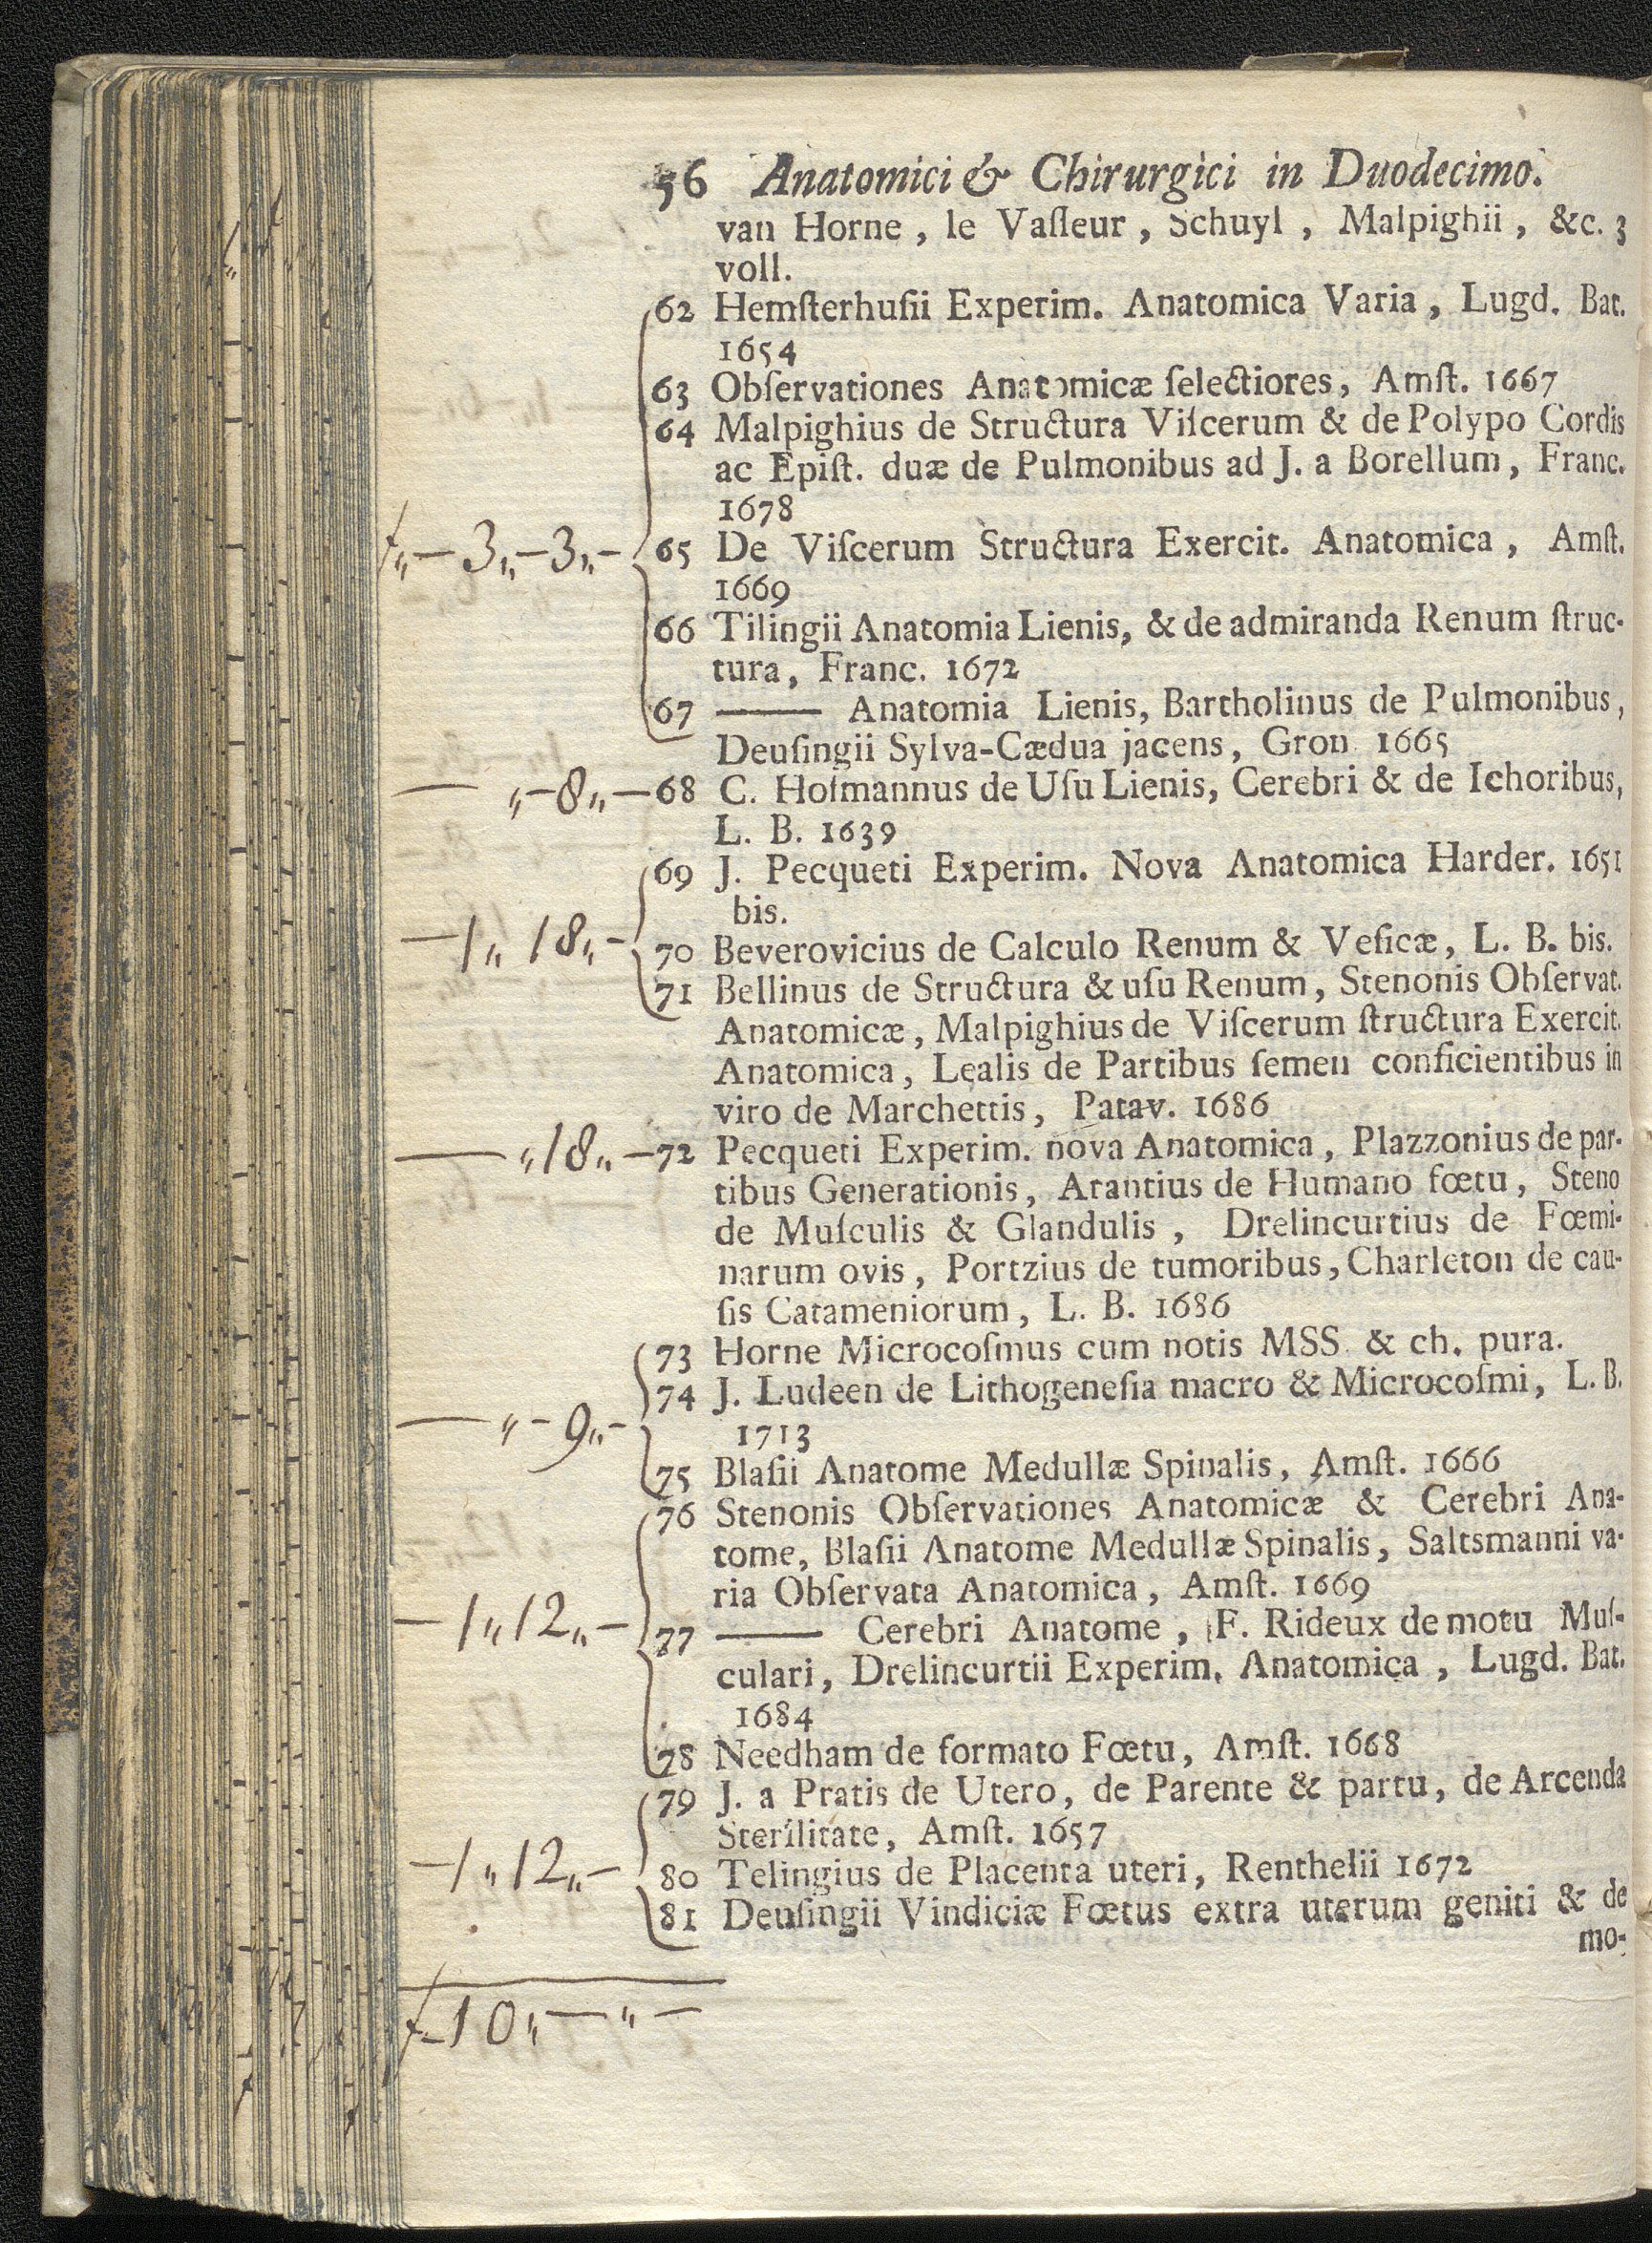 56 Anatomici & Chirurgici in Duodecimo.
van Horne , le Vaſſeur , Schuyl , Malpighii , &c. 3
voll.
62 Hemſterhuſii Experim. Anatomica Varia , Lugd. Bat.
1654
63 Obſervationes Anatomicæ ſelectiores, Amſt. 1667
64 Malpighius de Structura Viſcerum & de Polypo Cordis
ac Epiſt. duæ de Pulmonibus ad J. a Borellum , Franc.
1678
f„ - 3„ - 3„ - 65 De Viſcerum Structura Exercit. Anatomica , Amſt.
1669
66 Tilingii Anatomia Lienis, & de admiranda Renum ſtruc-
tura, Franc. 1672
67 —— Anatomia Lienis, Bartholinus de Pulmonibus,
Deuſingii Sylva-Cædua jacens, Gron. 1665
— „ - 8„ — 68 C. Hofmannus de Uſu Lienis, Cerebri & de Ichoribus,
L. B. 1639
69 J. Pecqueti Experim. Nova Anatomica Harder. 1651
bis.
— 1„ 18„ - 70 Beverovicius de Calculo Renum & Veſicæ, L. B. bis.
71 Bellinus de Structura & uſu Renum, Stenonis Obſervat.
Anatomicæ, Malpighius de Viſcerum ſtructura Exercit.
Anatomica, Lealis de Partibus ſemen conficientibus in
viro de Marchettis, Patav. 1686
— „ 18„ — 72 Pecqueti Experim. nova Anatomica, Plazzonius de par-
tibus Generationis, Arantius de Humano fœtu, Steno
de Muſculis & Glandulis , Drelincurtius de Fœmi-
narum ovis, Portzius de tumoribus, Charleton de cau-
ſis Catameniorum, L. B. 1686
73 Horne Microcoſmus cum notis MSS. & ch. pura.
74 J. Ludeen de Lithogeneſia macro & Microcoſmi, L. B.
— „ - 9„ - 1713
75 Blaſii Anatome Medullæ Spinalis, Amſt. 1666
76 Stenonis Obſervationes Anatomicæ & Cerebri Ana-
tome, Blaſii Anatome Medullæ Spinalis, Saltsmanni va-
ria Obſervata Anatomica, Amſt. 1669
— 1„ 12„ - 77 —— Cerebri Anatome , F. Rideux de motu Muſ-
culari, Drelincurtii Experim. Anatomica , Lugd. Bat.
1684
78 Needham de formato Fœtu, Amſt. 1668
79 J. a Pratis de Utero, de Parente & partu, de Arcenda
Sterilitate, Amſt. 1657
— 1„ 12„ - 80 Telingius de Placenta uteri, Renthelii 1672
81 Deuſingii Vindiciæ Fœtus extra uterum geniti & de
mo-
f - 10„ — „ -